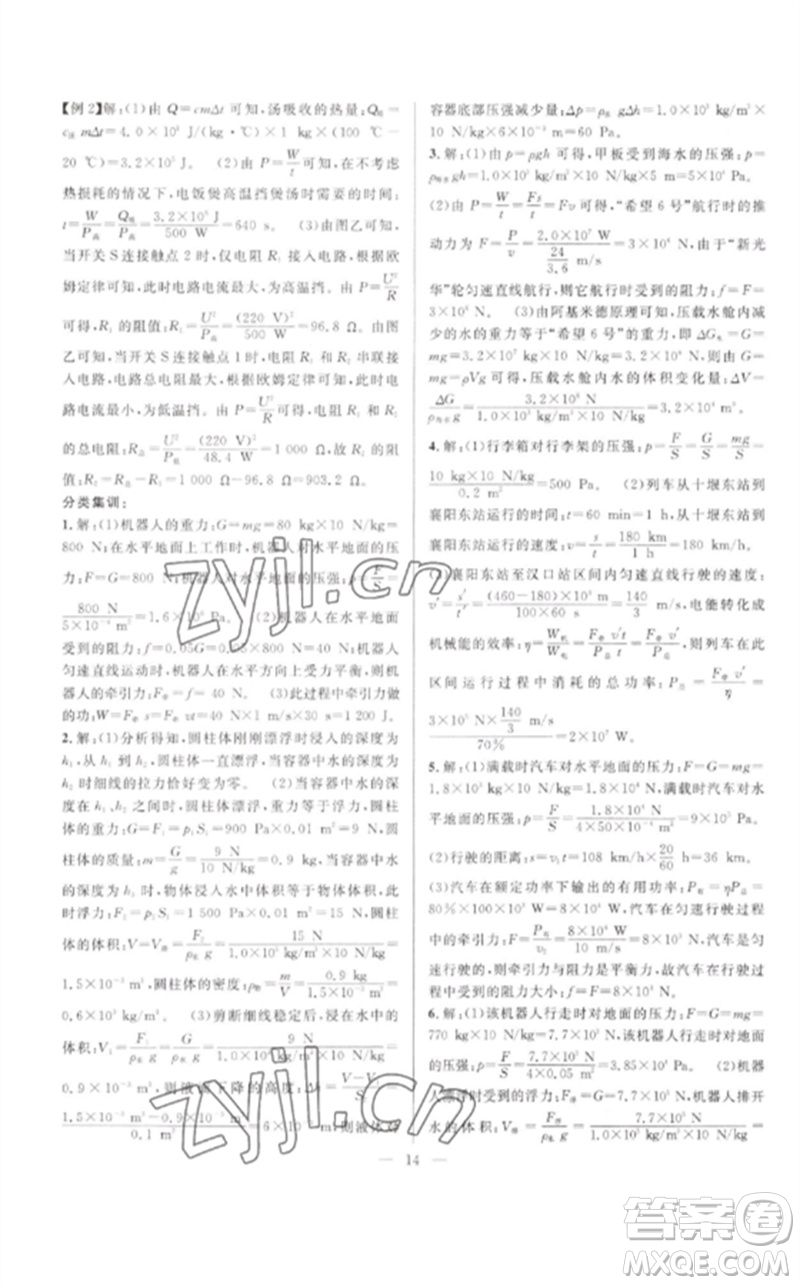 【例2】解:(1)由 Q=cmΔt 可知,汤吸收的热量:Q吸=
c汤 mΔt=4.0×10³ J/(kg·℃)×1 kg×(100 ℃-
20 ℃)=3.2×10⁵ J。 (2)由 P=W/t 可知,在不考虑
热损耗的情况下,电饭煲高温挡煲汤时需要的时间:
t=W/P高=Q吸/P高=3.2×10⁵ J/500 W=640 s。 (3)由图乙可知,
当开关 S 连接触点 2 时,仅电阻 R₁ 接入电路,根据欧
姆定律可知,此时电路电流最大,为高温挡。由 P=U²/R
可得,R₁ 的阻值:R₁=U²/P高=(220 V)²/500 W=96.8 Ω。由图
乙可知,当开关 S 连接触点 1 时,电阻 R₁ 和 R₂ 串联接
入电路,电路总电阻最大,根据欧姆定律可知,此时电
路电流最小,为低温挡。由 P=U²/R 可得,电阻 R₁ 和 R₂
的总电阻:R总=U²/P低=(220 V)²/48.4 W=1 000 Ω,故 R₂ 的阻
值:R₂=R总-R₁=1 000 Ω-96.8 Ω=903.2 Ω。
分类集训:
1.解:(1)机器人的重力:G=mg=80 kg×10 N/kg=
800 N;在水平地面上工作时,机器人对水平地面的压
力:F=G=800 N;机器人对水平地面的压强:p=F/S=
800 N/5×10⁻³ m²=1.6×10⁵ Pa。 (2)机器人在水平地面
受到的阻力:f=0.05G=0.05×800 N=40 N;机器人
匀速直线运动时,机器人在水平方向上受力平衡,则机
器人的牵引力:F牵=f=40 N。 (3)此过程中牵引力做
的功:W=F牵 s=F牵 vt=40 N×1 m/s×30 s=1 200 J。
2.解:(1)分析得知,圆柱体刚刚漂浮时浸入的深度为
h₁,从 h₁ 到 h₂,圆柱体一直漂浮,当容器中水的深度为
h₂ 时细线的拉力恰好变为零。 (2)当容器中水的深度
在 h₁、h₂ 之间时,圆柱体漂浮,重力等于浮力,圆柱
体的重力:G=F₁=p₁S₁=900 Pa×0.01 m²=9 N,圆
柱体的质量:m=G/g=9 N/10 N/kg=0.9 kg,当容器中水
的深度为 h₃ 时,物体浸入水中体积等于物体体积,此
时浮力:F₂=p₂S₁=1 500 Pa×0.01 m²=15 N,圆柱
体的体积:V=F₂/ρ水 g=15 N/1.0×10³ kg/m³×10 N/kg=
1.5×10⁻³ m³,圆柱体的密度:ρ物=m/V=0.9 kg/1.5×10⁻³ m³=
0.6×10³ kg/m³。 (3)剪断细线稳定后,浸在水中的
体积:V₁=F₁/ρ水 g=G/ρ水 g=9 N/1.0×10³ kg/m³×10 N/kg
=0.9×10⁻³ m³,则液面下降的高度:Δh=V-V₁/S=
1.5×10⁻³ m³-0.9×10⁻³ m³/0.1 m²=6×10⁻³ m,则液体对
容器底部压强减少量:Δp=ρ水 gΔh=1.0×10³ kg/m³×
10 N/kg×6×10⁻³ m=60 Pa。
3.解:(1)由 p=ρgh 可得,甲板受到海水的压强:p=
ρ海水gh=1.0×10³ kg/m³×10 N/kg×5 m=5×10⁴ Pa。
(2)由 P=W/t=Fs/t=Fv 可得,“希望 6 号”航行时的推
动力 F=P/v=2.0×10⁷ W/(24/3.6 m/s)=3×10⁶ N,由于“新光
华”轮匀速直线航行,则它航行时受到的阻力:f=F=
3×10⁶ N。 (3)由阿基米德原理可得,压载水舱内减
少的水的重力等于“希望 6 号”的重力,即 ΔG水=G=
mg=3.2×10⁷ kg×10 N/kg=3.2×10⁸ N,则由 G=
mg=ρVg 可得,压载水舱内水的体积变化量:ΔV=
ΔG/ρ海水g=3.2×10⁸ N/1.0×10³ kg/m³×10 N/kg=3.2×10⁴ m³。
4.解:(1)行李箱对行李架的压强:p=F/S=G/S=mg/S=
10 kg×10 N/kg/0.2 m²=500 Pa。 (2)列车从十堰东站到
襄阳东站运行的时间:t=60 min=1 h,从十堰东站到
襄阳东站运行的速度:v=s/t=180 km/1 h=180 km/h。
(3)襄阳东站至汉口站区间内匀速直线行驶的速度:
v′=s′/t′=(460-180)×10³ m/100×60 s=140/3 m/s,电能转化成
机械能的效率:η=W机/W电=F牵 v′t/P总t=F牵 v′/P总,则列车在此
区间运行过程中消耗的总功率:P总=F牵 v′/η=
3×10⁵ N×140/3 m/s/70%=2×10⁷ W。
5.解:(1)满载时汽车对水平地面的压力:F=G=mg=
1.8×10³ kg×10 N/kg=1.8×10⁴ N,满载时汽车对水
平地面的压强:p=F/S=1.8×10⁴ N/4×50×10⁻⁴ m²=9×10⁵ Pa。
(2)行驶的距离:s=vt=108 km/h×20/60 h=36 km。
(3)汽车在额定功率下输出的有用功率:P有=ηP总=
80%×100×10³ W=8×10⁴ W,汽车在匀速行驶过
程中的牵引力:F=P有/v=8×10⁴ W/10 m/s=8×10³ N,匀速行
驶,则牵引力与阻力是平衡力,故汽车在匀速行驶过
程中受到的阻力大小:f=F=8×10³ N。
6.解:(1)该机器人行走时对地面的压力:F=G=mg=
770 kg×10 N/kg=7.7×10³ N,该机器人行走时对地面
的压强:p=F/S=7.7×10³ N/4×0.05 m²=3.85×10⁴ Pa。 (2)机器
人漂浮时受到的浮力:F浮=G=7.7×10³ N,机器人排开
水的体积:V排=F浮/ρ水 g=7.7×10³ N/1.0×10³ kg/m³×10 N/kg=
— 14 —
zyjl.cn
zyjl.cn
答案卷
MXQE.COM